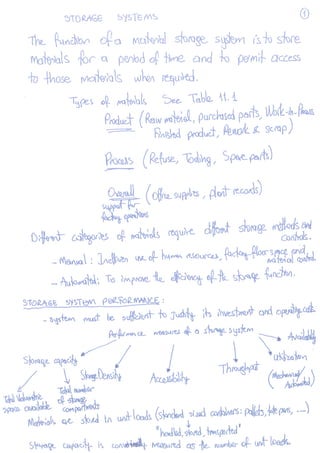 ①
STORAGE SYSTEMS
The function of a material storage system is to store
Materials for a period of time and to permit access
to those materials when required.
Types of materials See Table 11.1
Product (Raw material, purchased parts, Work-in-Process
Finished product, Rework & scrap)
Process (Refuse, Tooling, Spare parts)
Overall (Office supplies, plant records)
support for
factory operations
Different categories of materials require different storage methods and
controls.
- Manual : Inefficient use of human resources, factory-floor space and
material control
- Automated: To improve the efficiency of the storage function.
STORAGE SYSTEM PERFORMANCE :
- system must be sufficient to justify its investment and operating cost
Performance measures of a storage system
Availability
Storage capacity
Utilization
Storage Density
Accessibility
Throughput
(Mechanized/
Automated)
Total Volumetric
space available
Total number
of storage
compartments
Materials are stored in unit loads (standard sized containers: pallets, tote pans, ...)
"handled, stored, transported"
Storage capacity is measured as the number of unit loads